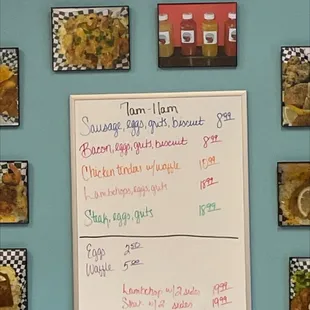 7am-11am
Sausage, eggs, grits, biscuit 8.99
Bacon, eggs, grits, biscuit 8.99
Chicken tendas w/ waffle 15.99
Lambchops, eggs, grits 18.99
Steak, eggs, grits 18.99
Eggs 2.50
Waffle 5.00
Lambchop w/2 sides 19.99
w/2 sides 19.99